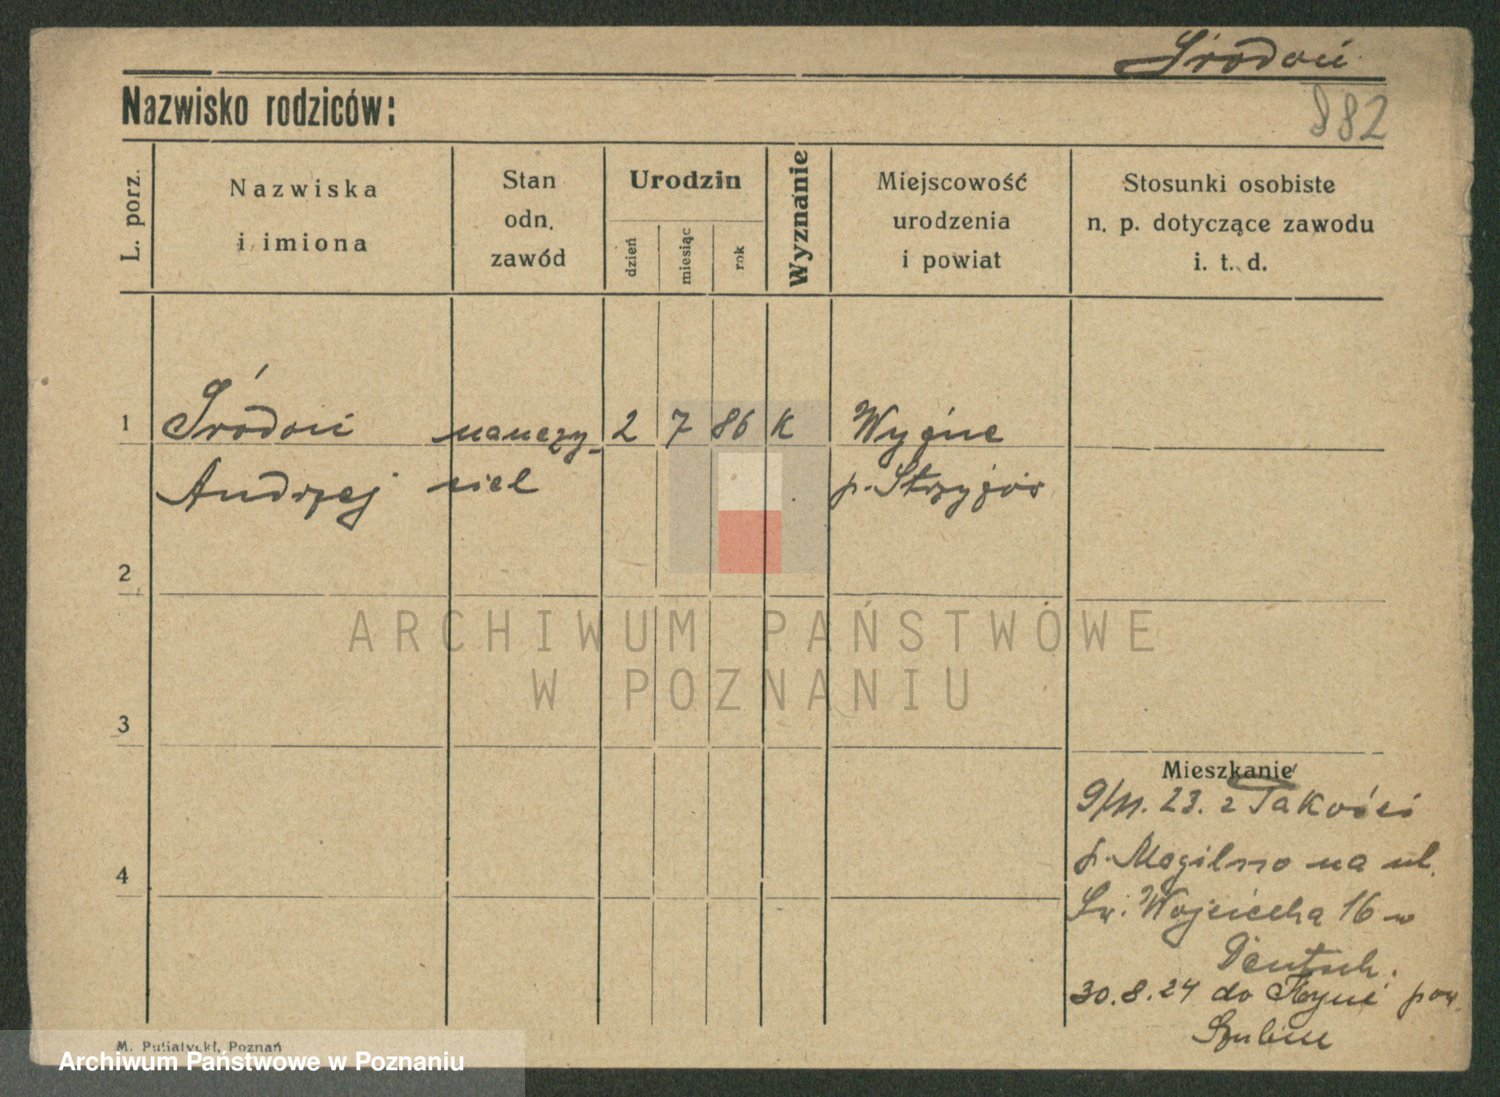 Środoń
882
Nazwisko rodziców:
L. porz.
Nazwiska
i imiona
Stan
odn.
zawód
Urodzin
dzień
miesiąc
rok
Wyznanie
Miejscowość
urodzenia
i powiat
Stosunki osobiste
n. p. dotyczące zawodu
i. t. d.
1 Środoń nauczy- 2 7 86 K Wyżne
Andrzej ciel p. Strzyżów
2
ARCHIWUM PAŃSTWOWE
W POZNANIU
3
Mieszkanie
9/11. 23. z Jakości
p. Mogilno na ul.
4
Św. Wojciecha 16 w
Deutsch.
30.8.24 do Kcyni pow.
Szubin
M. Putiatycki, Poznań
Archiwum Państwowe w Poznaniu